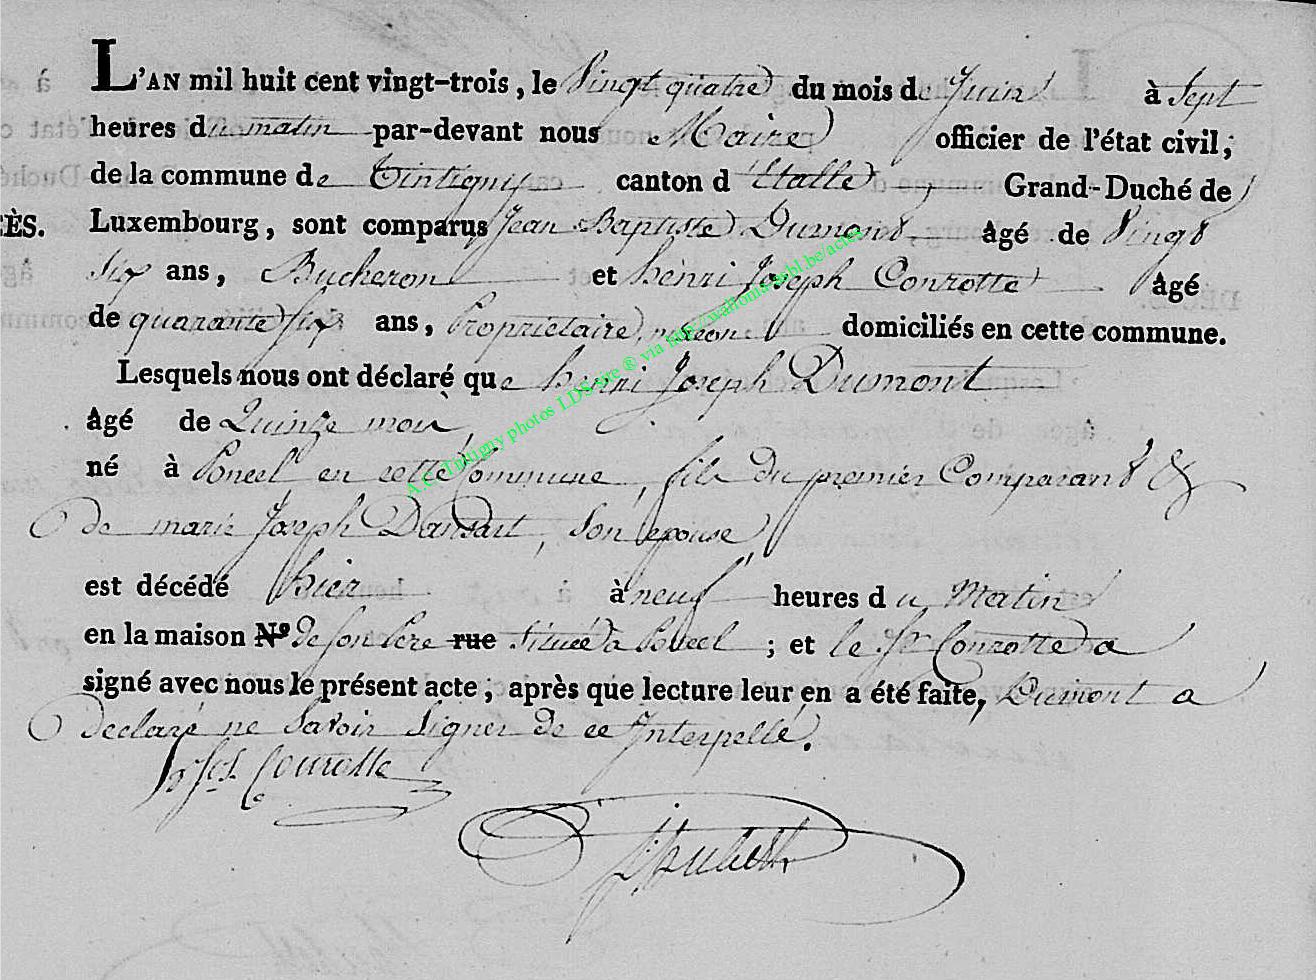 L'AN mil huit cent vingt-trois, le Vingt quatre du mois de Juin à Sept
heures du matin par-devant nous Maire officier de l'état civil;
de la commune de Tintigny canton d'Etalle, Grand-Duché de
ÈS. Luxembourg, sont comparus Jean Baptiste Dumont, âgé de Vingt
six ans, Bucheron et henri Joseph Conrotte âgé
de quarante six ans, Propriétaire, domiciliés en cette commune.
Lesquels nous ont déclaré que henri Joseph Dumont
âgé de Quinze mois,
né à Poncel en cette Commune, fils du premier Comparant &
de marie Joseph Dansart, Son epouse,
est décédé hier à neuf heures du Matin
en la maison N° de son Pere rue située à Poncel; et le Sr Conrotte a
signé avec nous le présent acte, après que lecture leur en a été faite, Dumont a
declaré ne Savoir Signer de ce Interpellé.
Conrotte
A.C. Tintigny photos LDS site ® via http://wallonia-asbl.be/actes